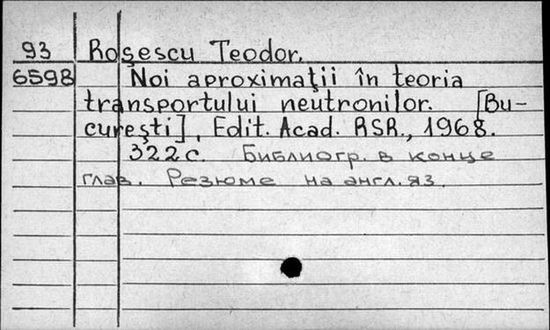 93 Roşescu Teodor.
6598 Noi aproximaţii în teoria
transportului neutronilor. [Bu-
cureşti], Edit. Acad. RSR., 1968.
322 с. Библиогр. в конце
глав. Резюме на англ. яз.